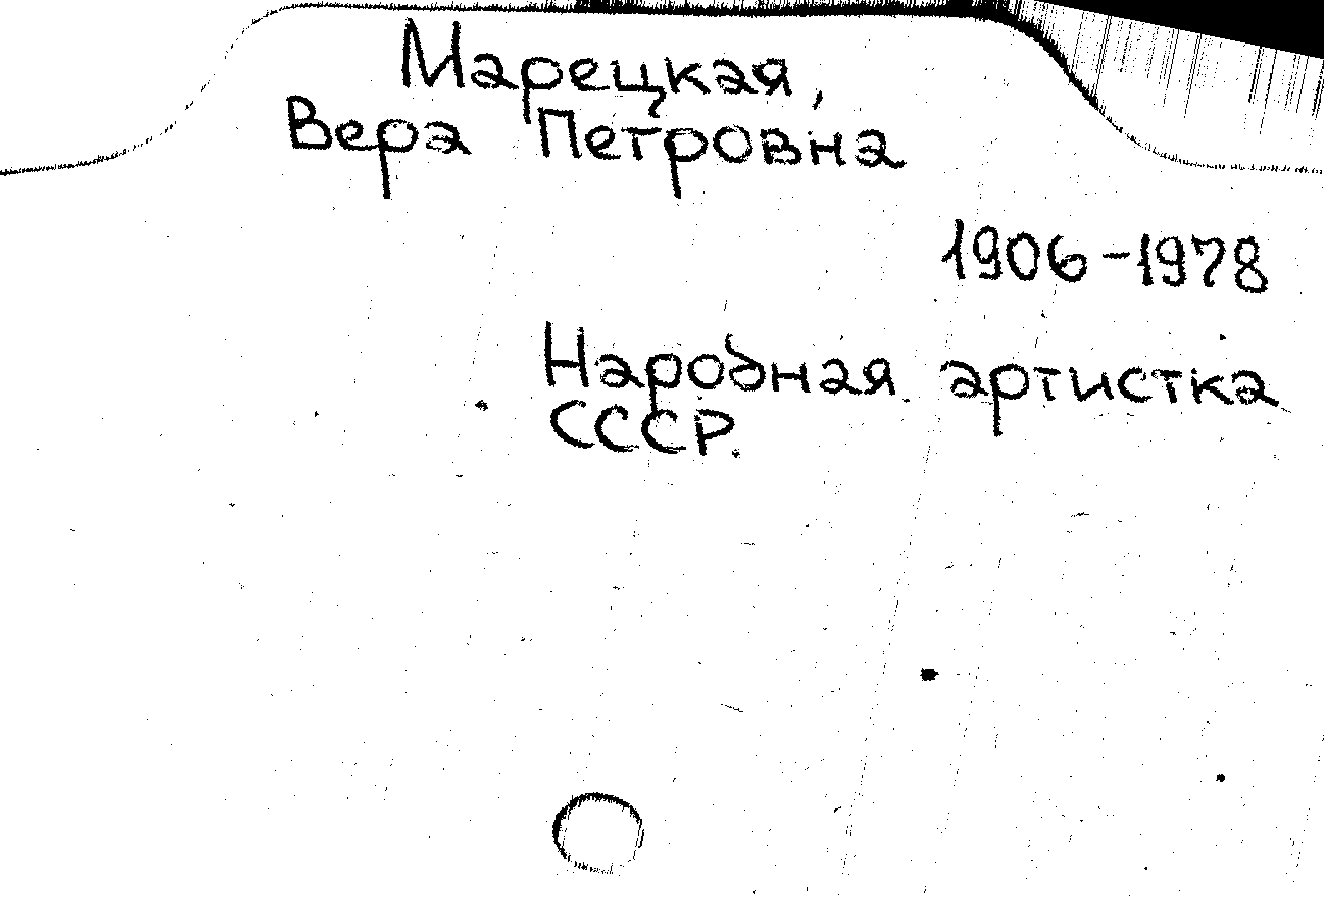 Марецкая,
Вера Петровна
1906-1978
Народная артистка
СССР.